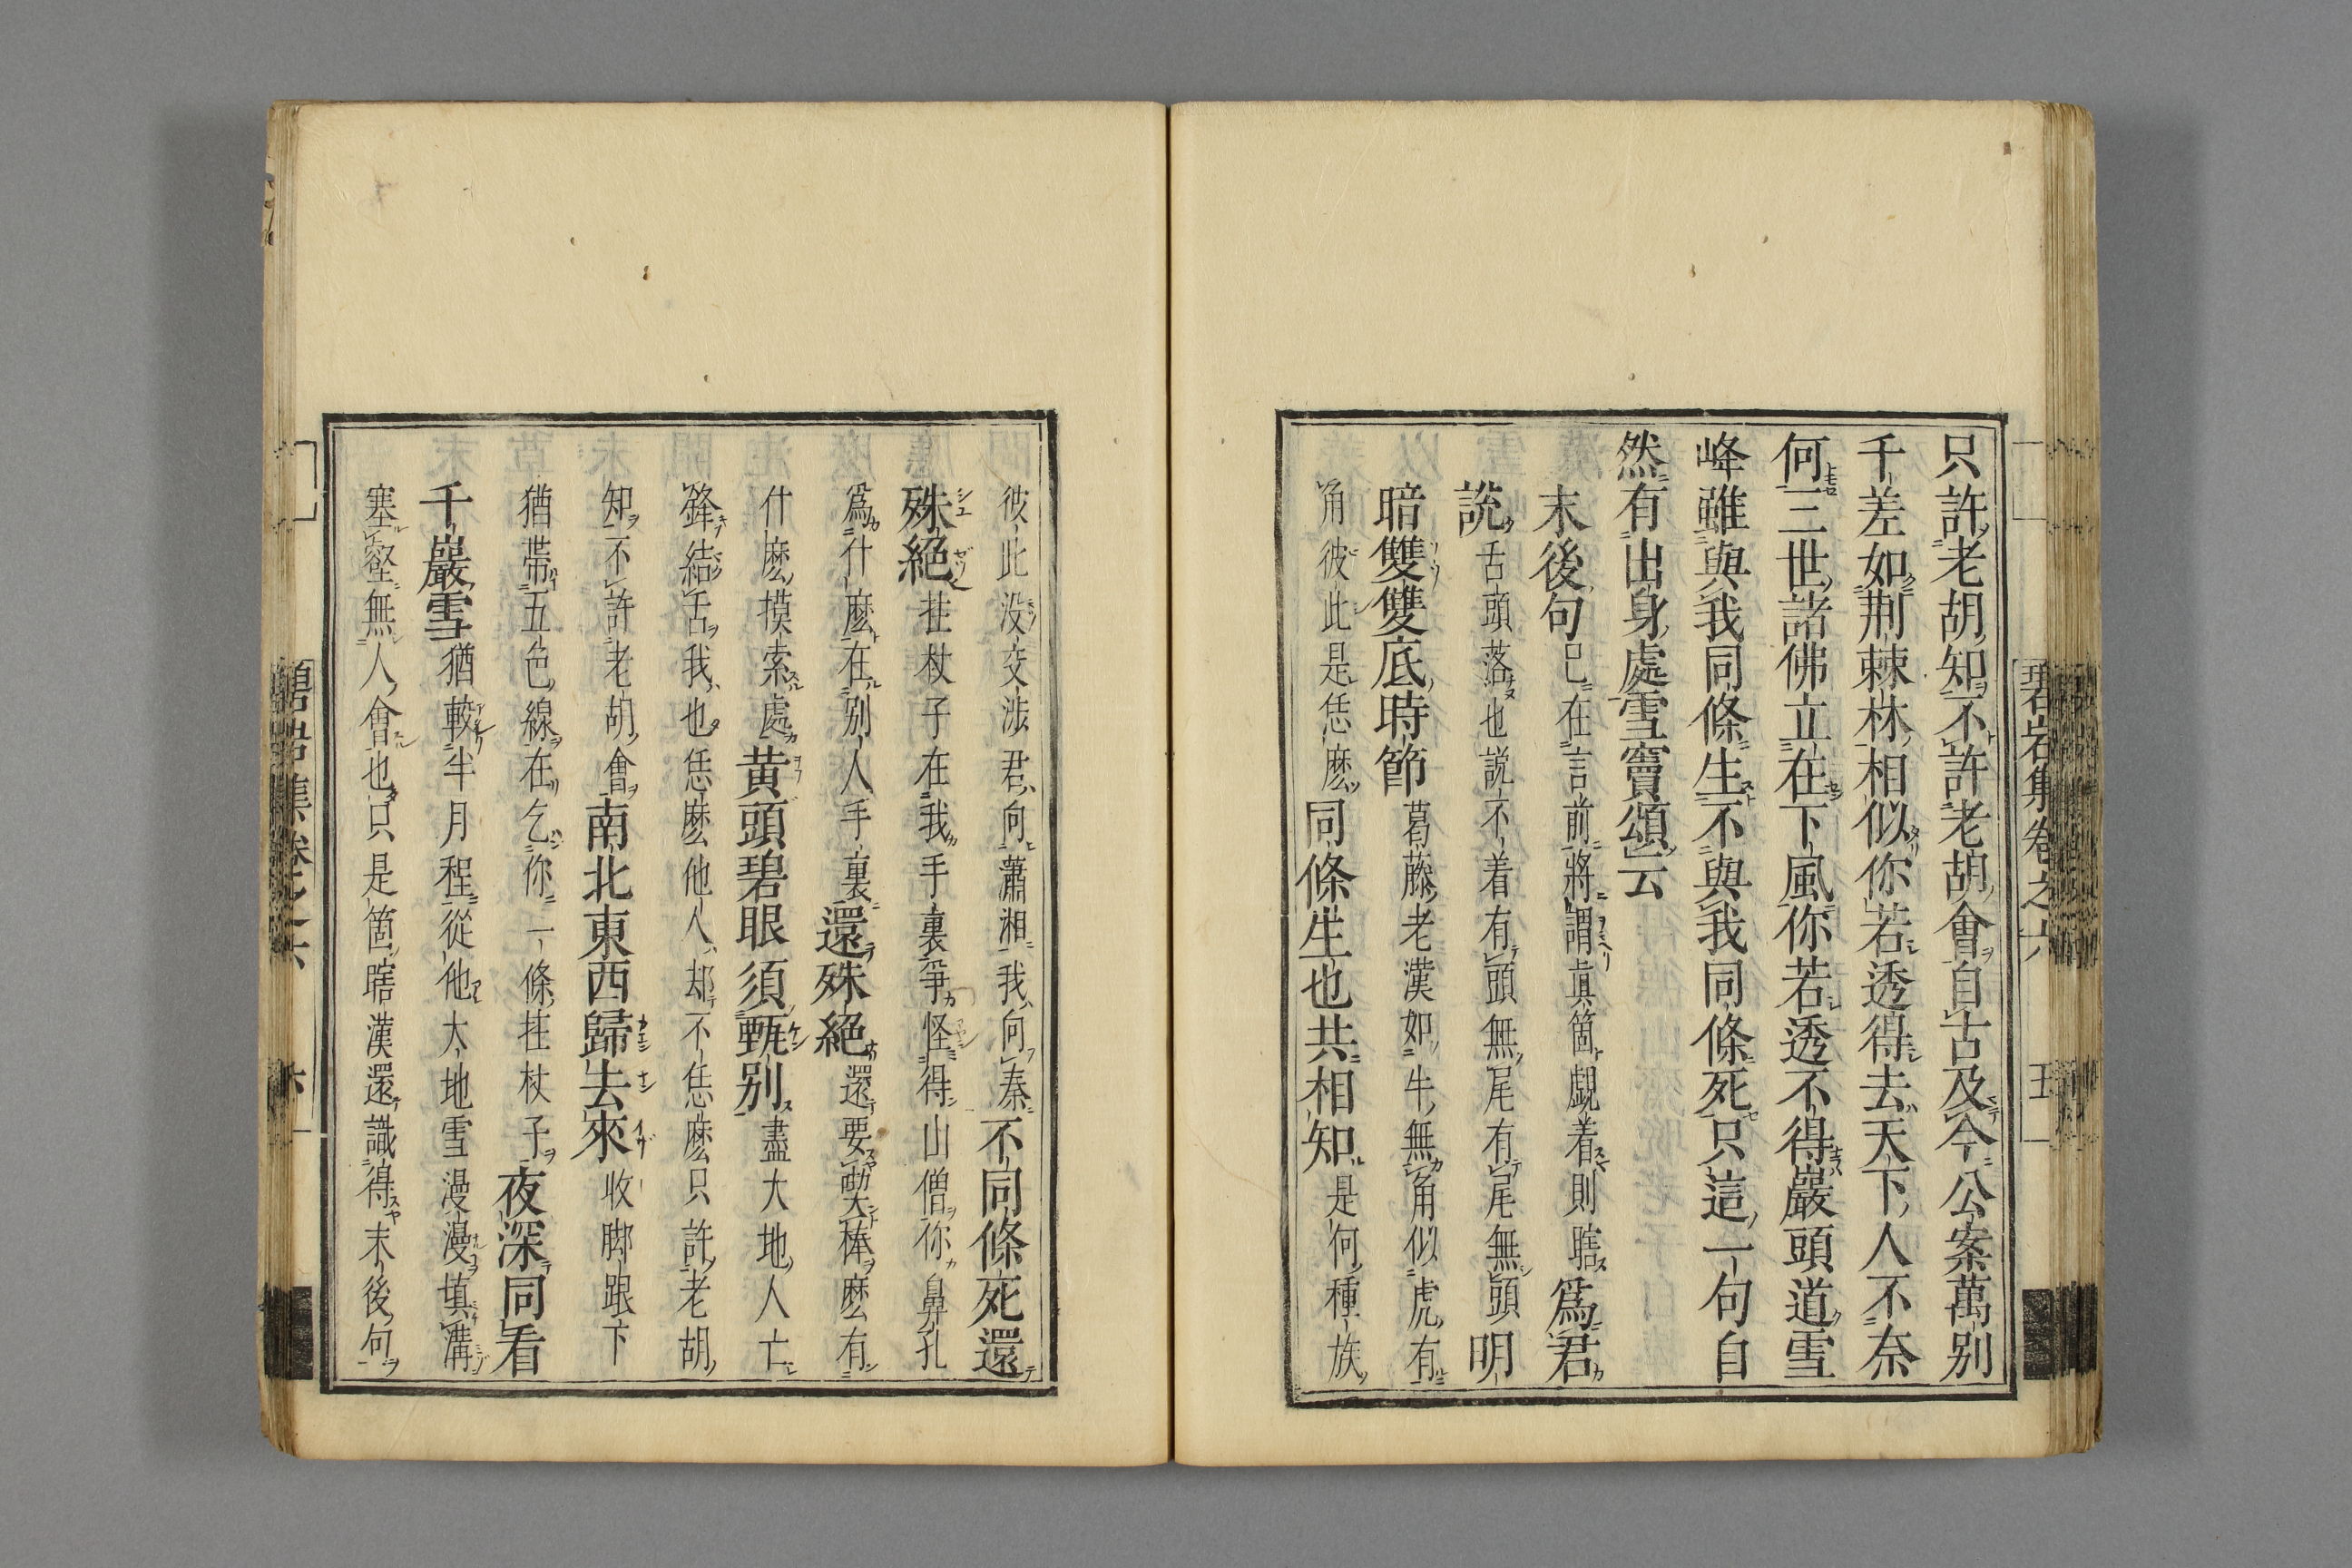 只許老胡知不許老胡會自古及今公案萬別
千差如荆棘林相似你若透得去天下人不奈
何三世諸佛立在下風你若透不得巖頭道雪
峰雖與我同條生不與我同條死只這一句自
然有出身處雪竇頌云
末後句已在言前將謂眞箇覷着則瞎爲君
說舌頭落也說不着有頭無尾有尾無頭明
暗雙雙底時節葛藤老漢如牛無角似虎有
角彼此是恁麼同條生也共相知是何種族
彼此没交涉君向瀟湘我向秦不同條死還
殊絕拄杖子在我手裏爭怪得山僧你鼻孔
爲什麼在別人手裏還殊絕還要喫棒麼有
什麼摸索處黄頭碧眼須甄别盡大地人亡
鋒結舌我也恁麼他人却不恁麼只許老胡
知不許老胡會南北東西歸去來收脚跟下
猶帶五色線在乞你一條拄杖子夜深同看
千巖雪猶較半月程從他大地雪漫漫填溝
塞壑無人會也只是箇瞎漢還識得末後句
碧岩集卷之六
五
六